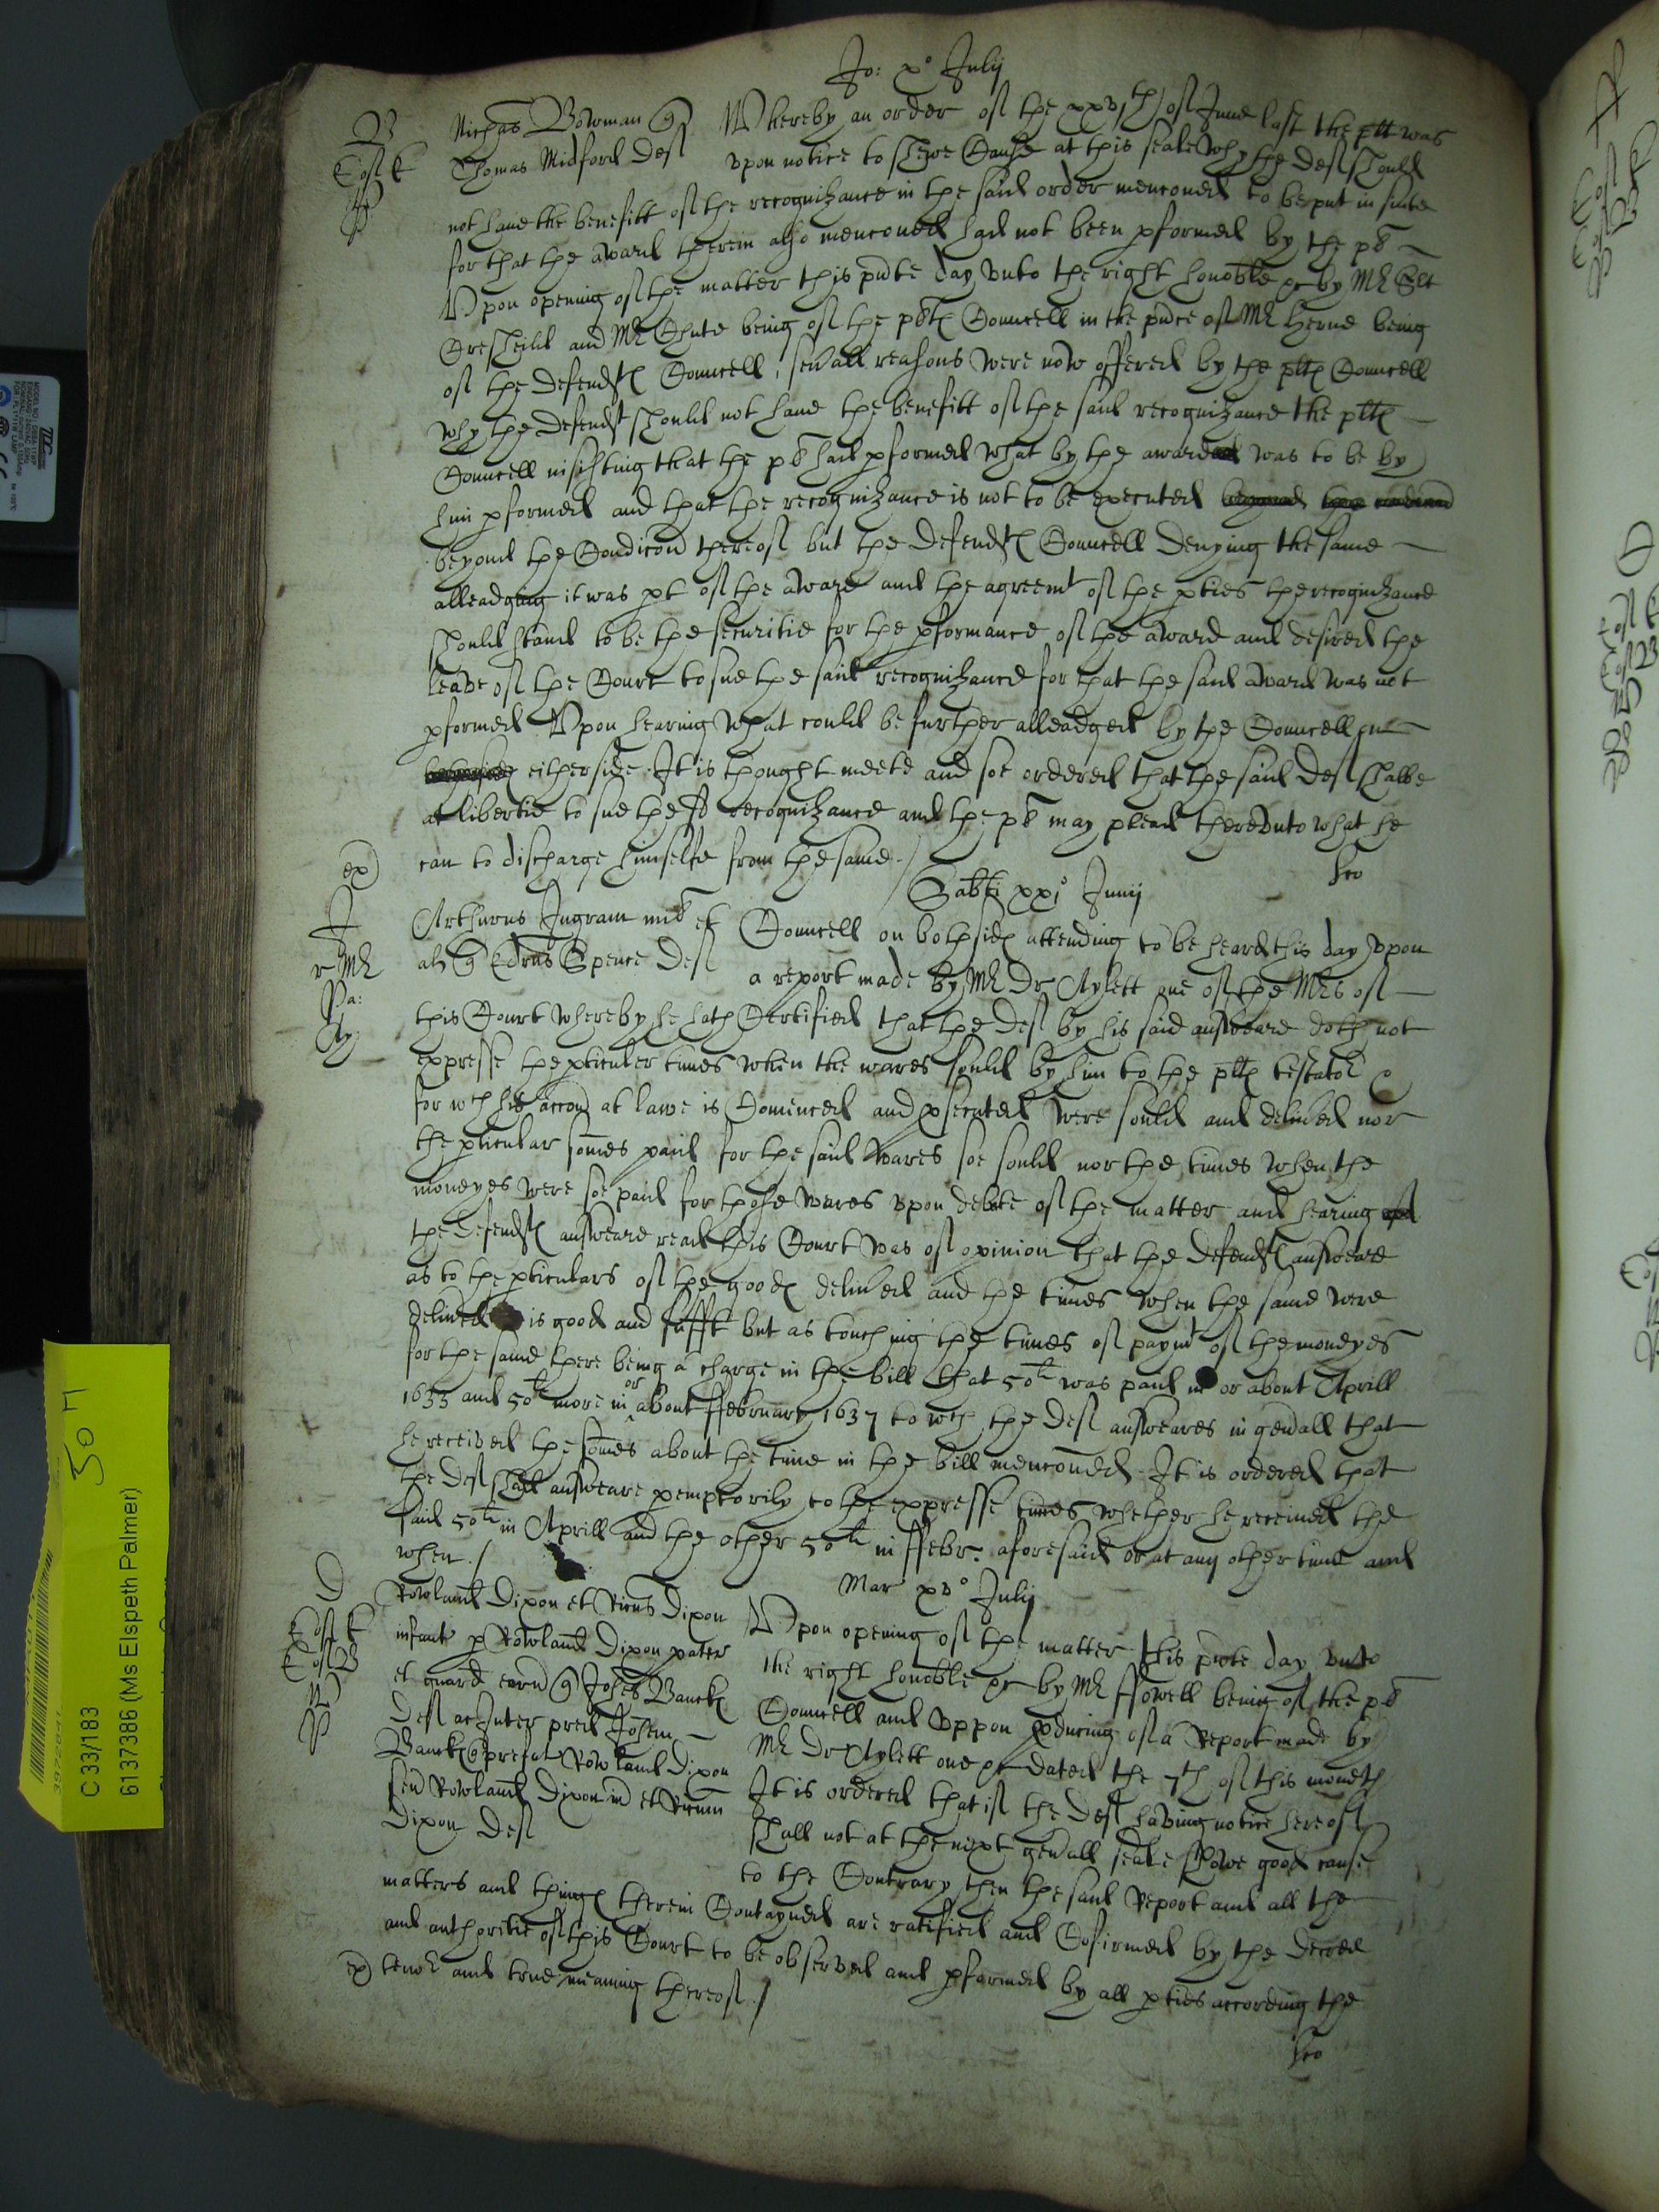 Jo: x° Julij
B
Nichas Bowman q
Whereby an order of the xxvjth of June last the plt was
Thomas Midford Def
vpon notice to shewe Cause at this seale why the def should
not haue the benefitt of the recognizance in the said order menconed to be put in suite
for that the award therein also menconed had not been pformed by the pl
Vpon opening of the matter this pnte day vnto the right honoble &c by Mr
and Mr Chute being of the plts Councell in the pnce of Mr Herne being
of the defendts Councell, seuall reasons were now offered by the plts Councell
why the defendt should not haue the benefitt of the said recognizance the plts
Councell insisting that the pl had pformed what by the award was to be by
him pformed and that the recognizance is not to be executed
beyond the Condicon thereof but the defendts Councell denying the same
alleadging it was pt of the award and the agreemt of the pties the recognizance
should stand to be the securitie for the pformance of the award and desired the
leave of the Court to sue the said recognizance for that the said award was not
pformed Vpon hearing what could be further alleadged by the Councell on
either side It is thought meete and soe ordered that the said Def shalbe
at libertie to sue the sd recognizance and the pl may plead therevnto what he
can to discharge himselfe from the same./
ex
Sabti xxj° Junij
J
Arthurus Ingram mil et
Councell on both sides attending to be heard this day vpon
r Mr
al q Edrus Spence Def
a report made by Mr Dr Aylett one of the Mrs of
Pa:
this Court whereby he hath Certified that the def by his said answeare doth not
Ay:
expresse the pticuler times when the wares sould by him to the plts testator
for wch his accon at lawe is Comenced and psecuted were sould and deliued nor
the pticular somes paid for the said wares soe sould nor the times when the
moneyes were soe paid for those wares vpon debate of the matter and hearing
the defendts answeare read this Court was of opinion that the defendts answeare
as to the pticulars of the goods deliued and the times when the same were
deliued is good and sufft but as touching the times of paymt of the moneyes
for the same there being a charge in the bill that 50li was paid in or about Aprill
1633 and 50li more in or about ffebruary 1637 to wch the def answeares in genall that
he received the somes about the time in the bill menconed. It is ordered that
the def shall answeare pemptorily to the expresse times whether he receiued the
said 50li in Aprill and the other 50li in ffebr: aforesaid or at any other time and
when./
Mar xv° Julij
D
Rowland Dixon et Ricus Dixon
Vpon opening of the matter this pnte day vnto
infant p Rowland Dixon pater
the right honoble &c by Mr ffowell being of the pl
et guard eord q Johes Bancks
Councell and vppon pducing of a Report made by
Def ac Inter pred Johem
Mr Dr Aylett one &c dated the 7th of this moneth
Bancks q prefat Rowland Dixon
It is ordered that if the def having notice hereof
sen Rowland Dixon et Ricum
shall not at the next genall seale shewe good cause
Dixon Def
to the Contrary then the said Report and all the
matters and things therein Contayned are ratified and Cofirmed by the decree
and authoritie of this Court to be observed and pformed by all pties according the
ex
tenor and true meaning thereof./
50 7
C 33/183
6137386 (Ms Elspeth Palmer)